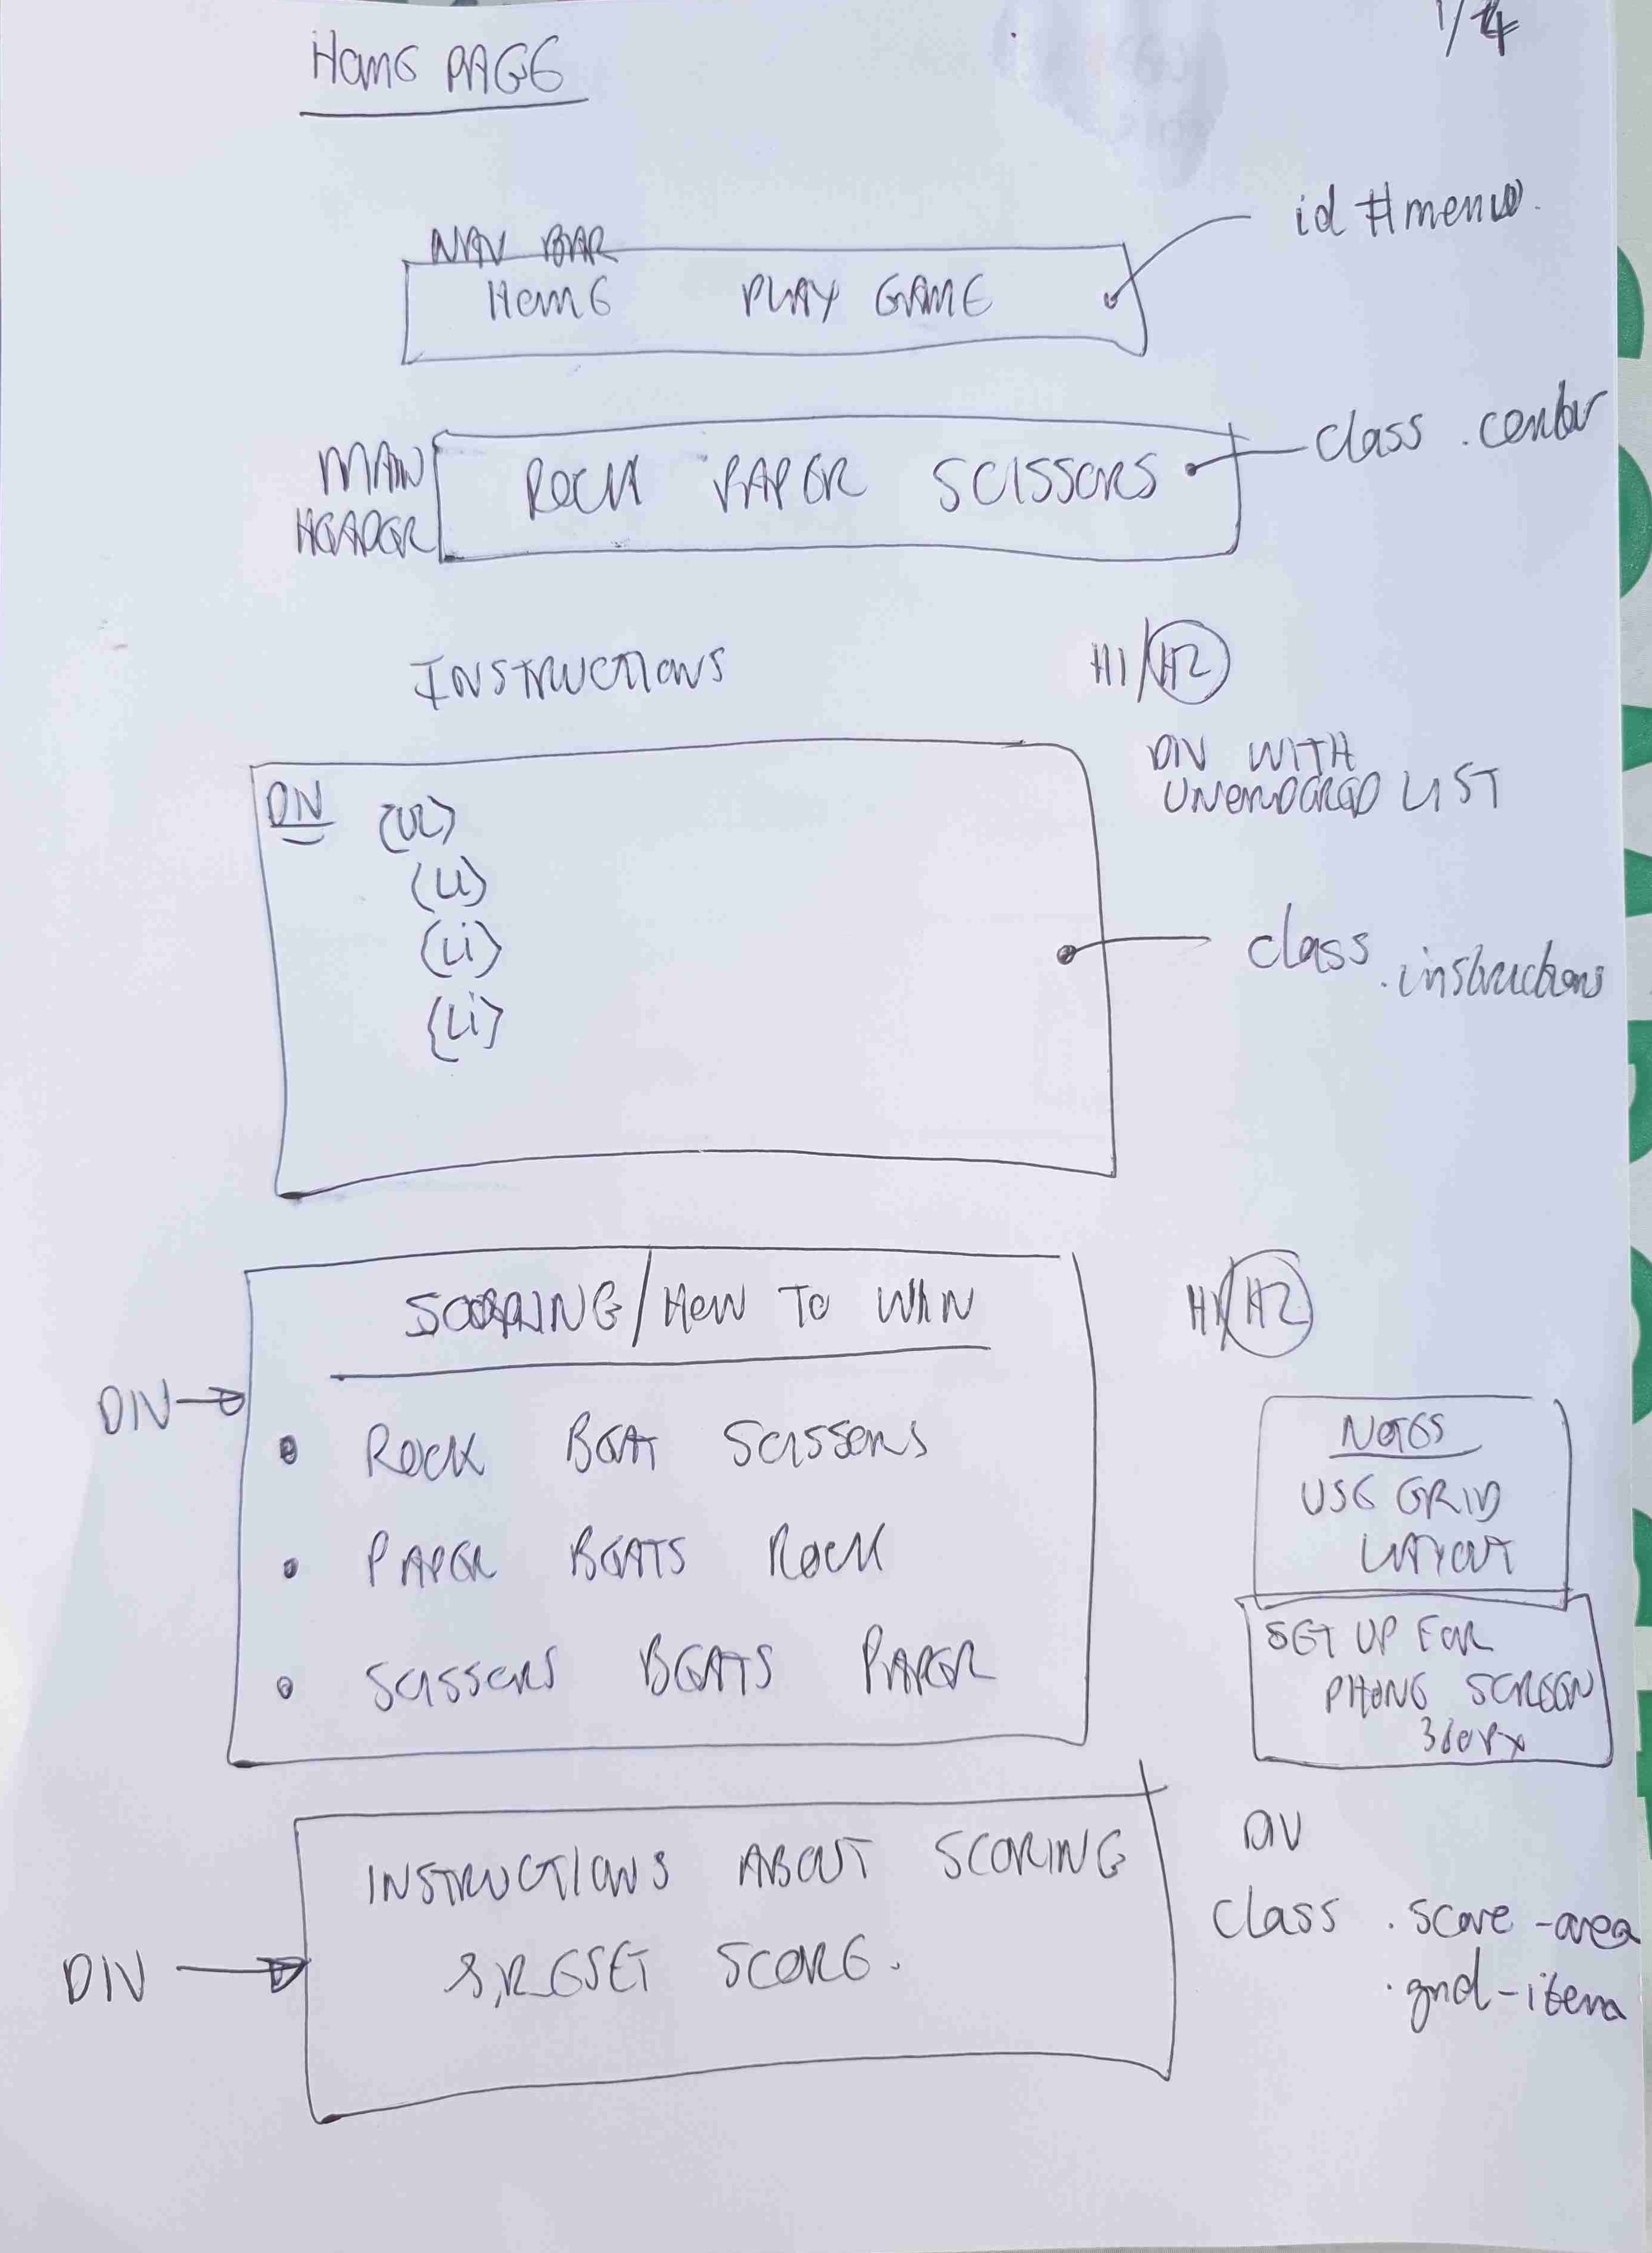 1/4
HOME PAGE
id #menu.
NAV BAR
HOME PLAY GAME
class .center
MAIN
HEADER
ROCK PAPER SCISSORS
INSTRUCTIONS
H1/H2
DIV WITH
UNORDERED LIST
DIV
{UL}
{Li}
{Li}
{Li}
class
.instructions
SCORING/HOW TO WIN
H1/H2
DIV
• ROCK BEAT SCISSORS
• PAPER BEATS ROCK
• SCISSORS BEATS PAPER
NOTES
USE GRID
LAYOUT
SET UP FOR
PHONE SCREEN
360Px
INSTRUCTIONS ABOUT SCORING
& RESET SCORE.
DIV
DIV
class .score-area
.grid-item